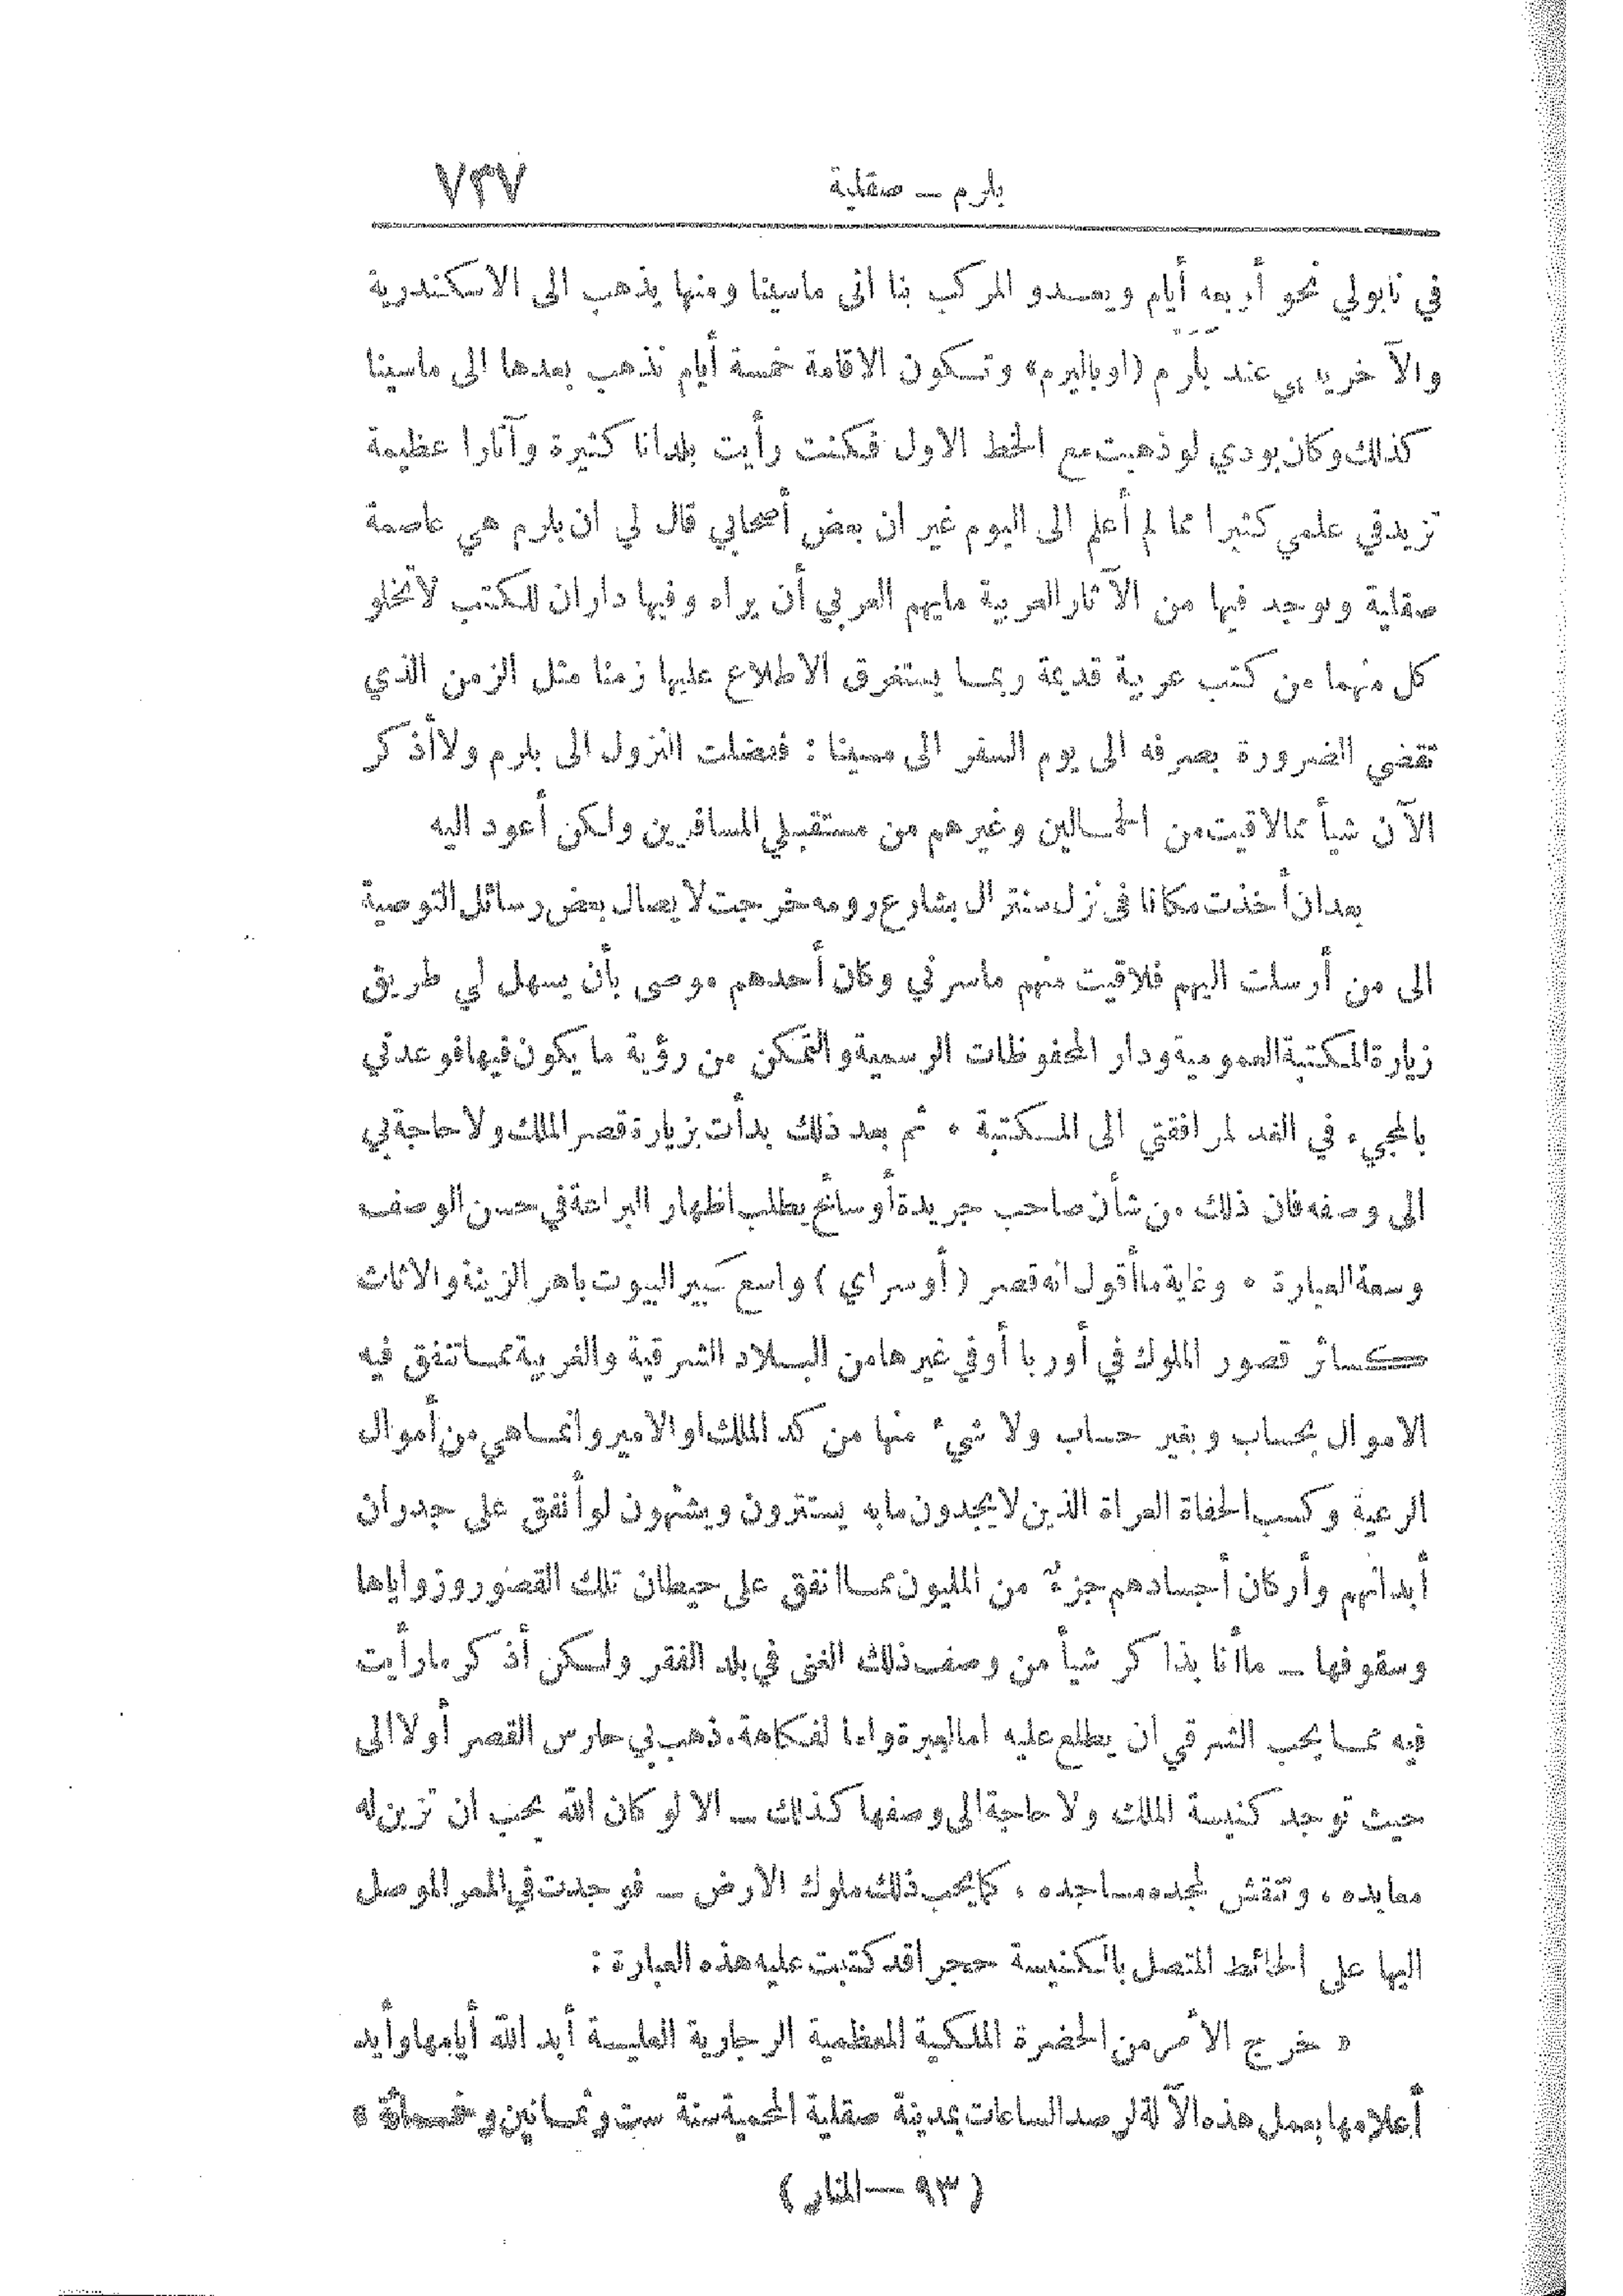 بلرم – صقلية ٧٣٧
في نابولي نحو أربعة أيام ويعدو المركب بنا الى ماسينا ومنها يذهب الى الاسكندرية
والآخر عند بلرم (اوباليرم) وتكون الاقامة خمسة أيام نذهب بعدها الى ماسينا
كذلك وكان بودي لو ذهبت مع الخط الاول فكنت رأيت بلدانا كثيرة وآثارا عظيمة
تزيد في علمي كثيرا مما لم أعلم الى اليوم غير ان بعض أصحابي قال لي ان بلرم هي عاصمة
صقلية ويوجد فيها من الآثار العربية ما يهم العربي أن يراه وفيها داران للكتب لا تخلو
كل منهما من كتب عربية قديمة ربما يستغرق الاطلاع عليها زمنا مثل الزمن الذي
تقضي الضرورة بصرفه الى يوم السفر الى مسينا : ففضلت النزول الى بلرم ولا أذكر
الآن شيأ مما لاقيت من الحمالين وغيرهم من مستقبلي المسافرين ولكن أعود اليه
بعد ان أخذت مكانا في نزل سنترال بشارع رومه خرجت لايصال بعض رسائل التوصية
الى من أرسلت اليهم فلاقيت منهم ما سرني وكان أحدهم موصى بأن يسهل لي طريق
زيارة المكتبة العمومية ودار المحفوظات الرسمية والتمكن من رؤية ما يكون فيها فوعدني
بالمجيء في الغد لمرافقتي الى المكتبة . ثم بعد ذلك بدأت بزيارة قصر الملك ولا حاجة بي
الى وصفه فان ذلك من شأن صاحب جريدة أو سائح يطلب اظهار البراعة في حسن الوصف
وسعة العبارة . وغاية ما أقول انه قصر (أو سراي) واسع كبير البيوت باهر الزينة والاثاث
كسائر قصور الملوك في أوربا أو في غيرها من البلاد الشرقية والغربية مما تنفق فيه
الاموال بحساب وبغير حساب ولا شيء منها من كد الملك او الامير وانما هي من أموال
الرعية وكسب الحفاة العراة الذين لا يجدون ما به يستترون ويشتهون لو أنفق على جدران
أبدانهم وأركان أجسادهم جزء من المليون مما انفق على حيطان تلك القصور وزواياها
وسقوفها – ما أنا بذاكر شيأ من وصف ذلك الغنى في بلد الفقر ولكن أذكر ما رأيت
فيه مما يحب الشرقي ان يطلع عليه اما لعبرة واما لفكاهة. ذهب بي حارس القصر أولا الى
حيث توجد كنيسة الملك ولا حاجة الى وصفها كذلك – الا لو كان الله يحب ان تزين له
معابده ، وتنقش لمجده مساجده ، كما يحب ذلك ملوك الارض – فوجدت في الممر الموصل
اليها على الحائط المتصل بالكنيسة حجرا قد كتبت عليه هذه العبارة :
« خرج الأمر من الحضرة الملكية المعظمية الرجارية العلية أبد الله أيامها وأيد
أعلامها بعمل هذه الآلة لرصد الساعات بمدينة صقلية المحمية سنة ست وثمانين وخمسمائة »
(٩٣ — المنار)